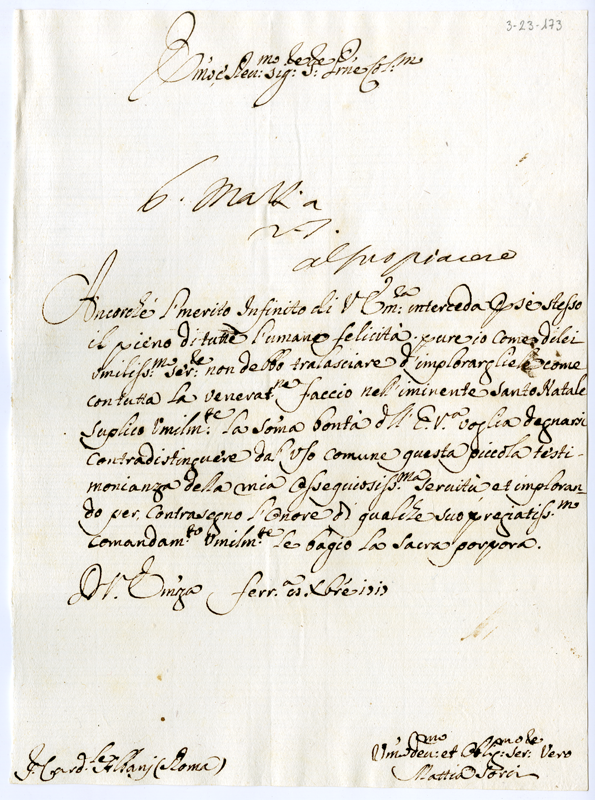 3-23-173
Em.o e Rev.mo Sig.r Sig.r P.rne Col.mo
6. Mall.a
al suo piacere
Ancorché l'merito Infinito di V. Em.za interceda p se stesso
il pieno di tutte l'umane felicità, pure io come di lei
umiliss.mo ser.re non debbo tralasciare d'implorargliele come
con tutta la venerat.ne faccio nell'iminente santo Natale
suplico umilm.te la somma bontà dell' E. V.a voglia degnarsi
contradistinguere dal uso comune questa piccola testi-
monianza della mia osseguiosiss.ma servitù et imploran-
do per contrasegno l'onore di qualche suo pregiatiss.mo
comandam.to umilm.te le bagio la sacra porpora.
Di V. Em.za Ferr.a Xbre 1719
S. Card.le Albani (Roma)
Um.mo Dev.mo et Obbl.mo Ser.re Vero
Mattio